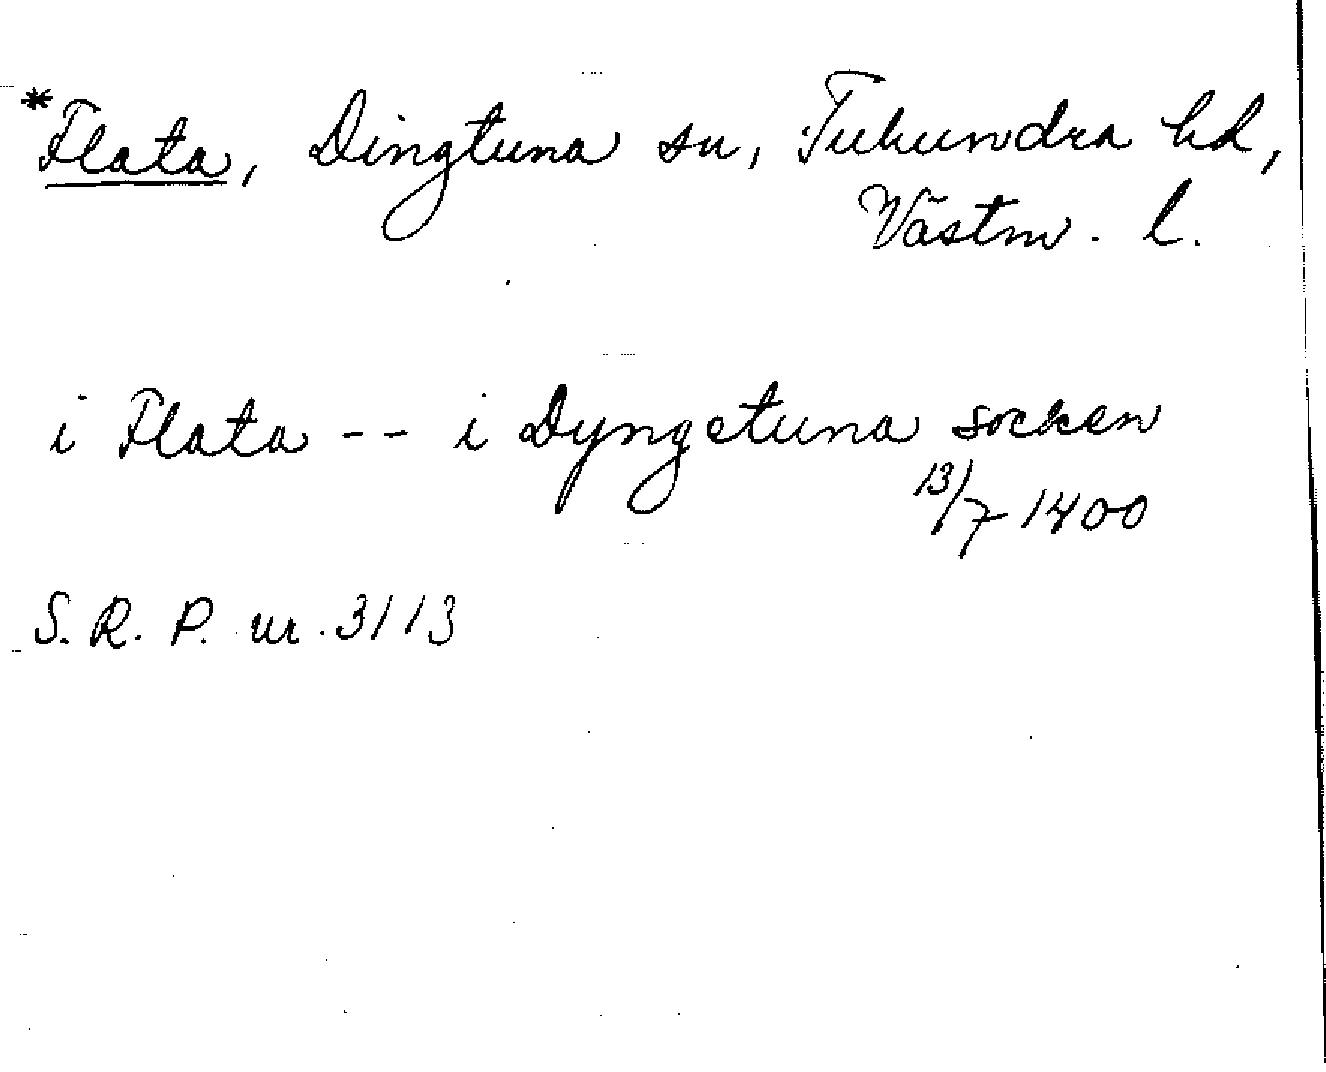 *Flata, Dingtuna sn, Tuhundra hd,
Västm. l.
i Flata -- i Dyngetuna socken
13/7 1400
S. R. P. nr. 3113